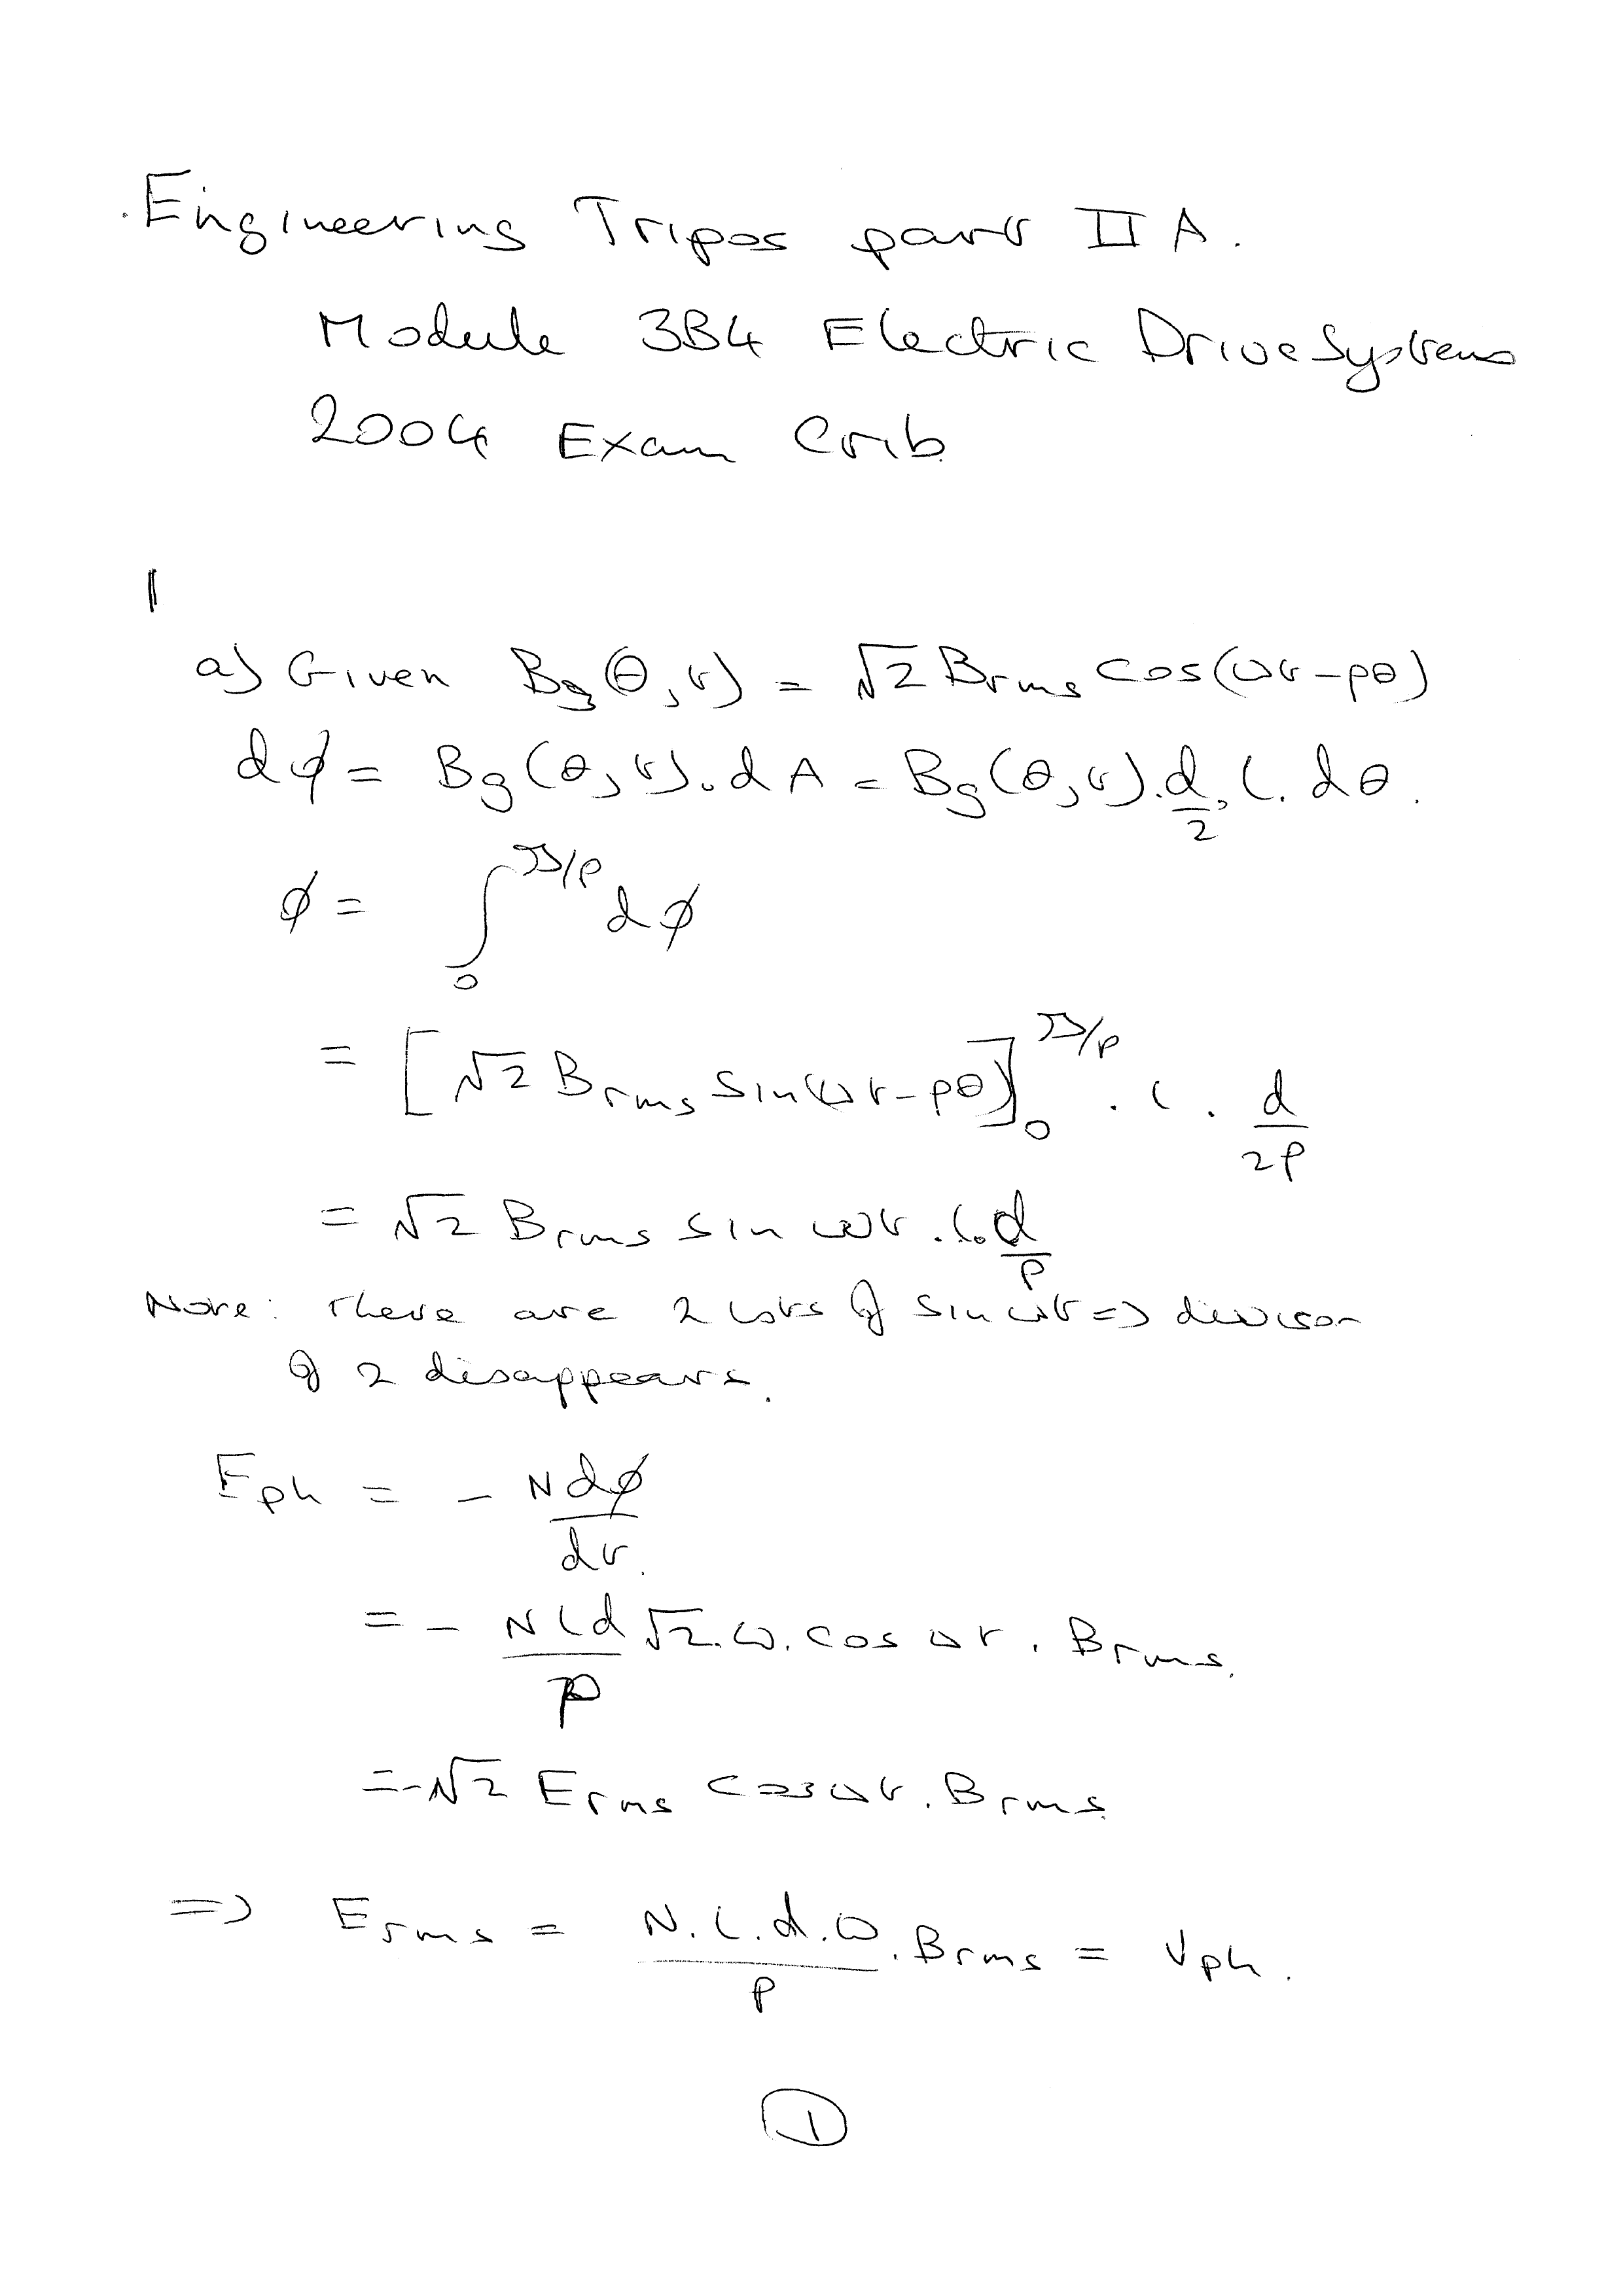 Engineering Tripos part II A.
Module 3B4 Electric Drive Systems
2004 Exam Crib
1
a) Given Bg(θ,t) = √2 Brms cos(ωt-pθ)
dϕ = Bg(θ,t).dA = Bg(θ,t).d/2.l.dθ.
ϕ = ∫₀^π/p dϕ
= [√2 Brms sin(ωt-pθ)]₀^π/p . l . d/2p
= √2 Brms sin ωt .l.d/p
Note: there are 2 lots of sin ωt => divisor
of 2 disappears.
Eph = - Ndϕ/dt.
= - Nld/p √2.ω.cos ωt . Brms.
= -√2 Erms cos ωt . Brms
=> Erms = N.l.d.ω/p . Brms = Vph.
1